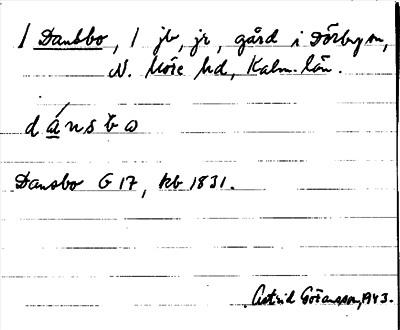 / Dansbo, / jb, jr, gård i Dörby sn,
N. Möre hd, Kalm. län.
dánsbo
Dansbo G 17, kb 1831.
Astrid Göransson, 1943.